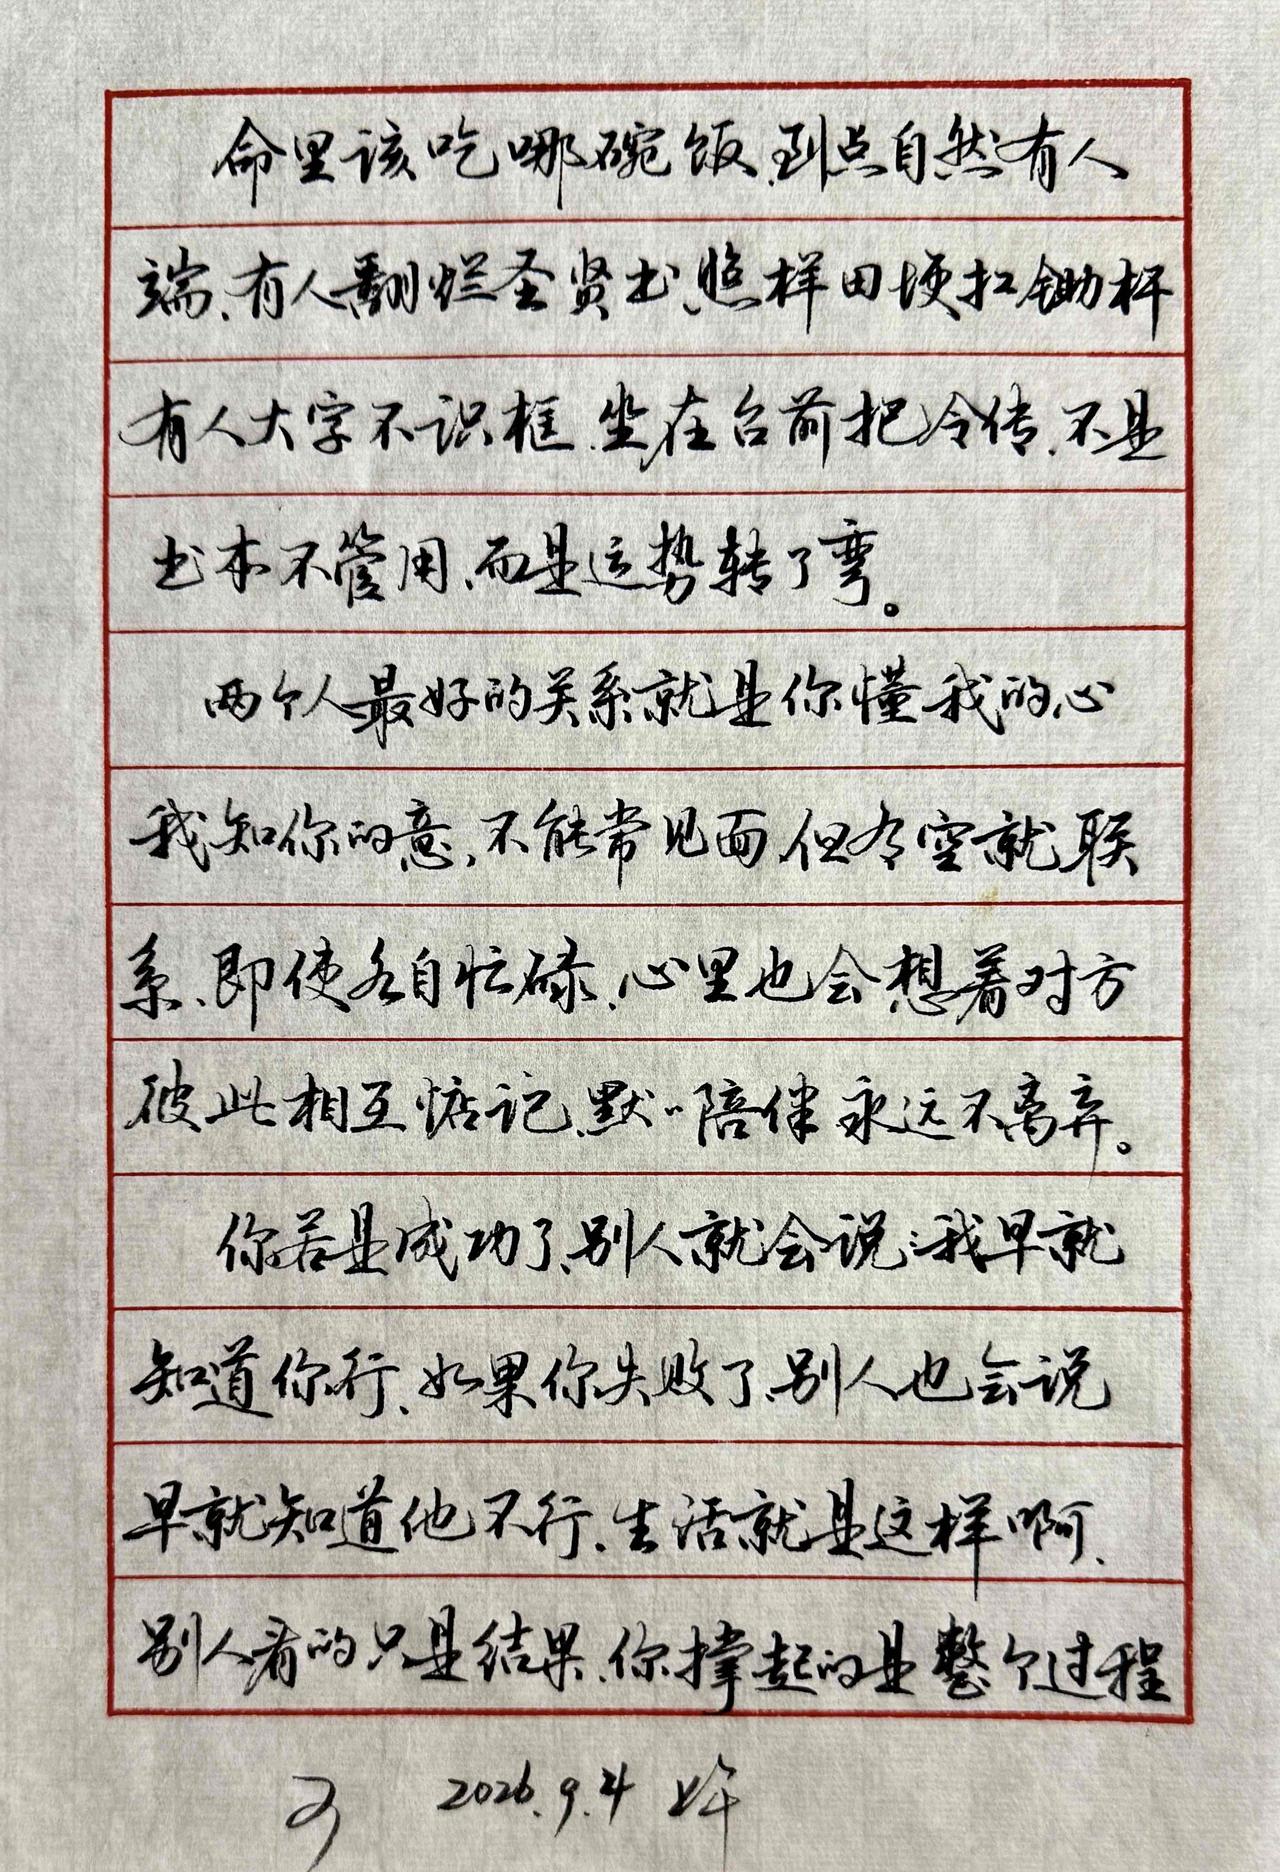 命里该吃哪碗饭、到点自然有人
端、有人翻烂圣贤书、照样田埂扛锄杆
有人大字不识框、坐在台前把令传、不是
书本不管用、而是运势转了弯。
两个人最好的关系就是你懂我的心
我知你的意、不能常见面、但有空就联
系、即使各自忙碌、心里也会想着对方
彼此相互惦记、默〃陪伴 永远不离弃。
你若是成功了、别人就会说：我早就
知道你行、如果你失败了、别人也会说
早就知道他不行、生活就是这样啊、
别人看的只是结果、你撑起的是整个过程
2026.9.4 上午